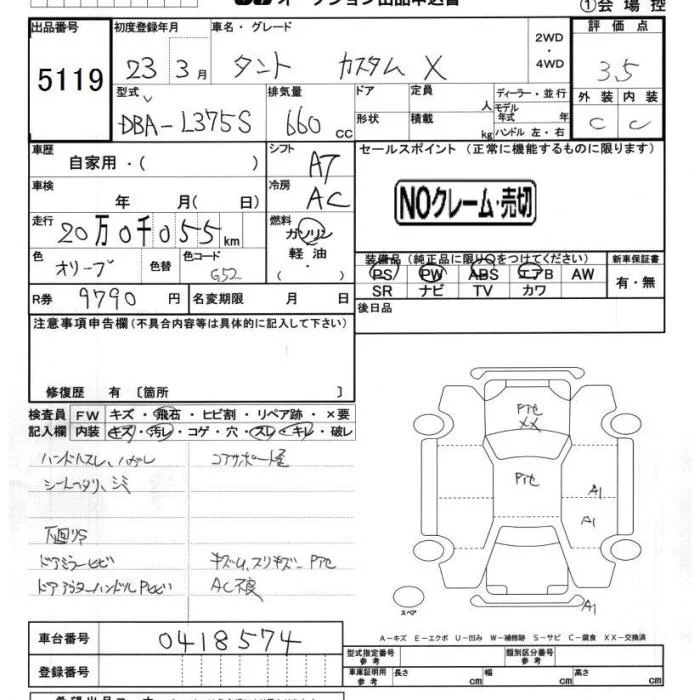 オークション出品申込書 ①会場控
出品番号 初度登録年月 車名・グレード 2WD・4WD 評価点
5119 23年3月 タント カスタム X 3.5
型式 排気量 ドア 定員 人 ディーラー・並行 外装 内装
DBA-L375S 660cc 形状 積載 kg モデル年式 年 ハンドル 左・右 C C
車歴 シフト セールスポイント (正常に機能するものに限ります)
自家用・( ) AT
車検 年 月( 日) 冷房 AC
NOクレーム・売切
走行 20万0千055km 燃料 ガソリン 軽油 ・( )
色 オリーブ 色替 色コード G52
装備品(純正品に限り○をつけてください) 新車保証書
PS PW ABS エアB AW 有・無
SR ナビ TV カワ
R券 9790円 名変期限 月 日
後日品
注意事項申告欄(不具合内容等は具体的に記入して下さい)
修復歴 有〔箇所 〕
検査員 FW キズ・飛石・ヒビ割・リペア跡・×要
記入欄 内装 キズ・汚レ・コゲ・穴・スレ・キレ・破レ
ハンドルスレ、ハガレ コアサポート歪
シートヘタリ、シミ
下廻りS
ドアミラーヒビ キズ凹、スリキズ Pアセ
ドアアウターハンドルPヒビ AC不良
Pアセ
XX
Pアセ
A1
A1
A1
スペア
A-キズ E-エクボ U-凹み W-補修跡 S-サビ C-腐食 XX-交換済
車台番号 0418574
型式指定番号 参考 類別区分番号 参考
登録番号
車庫証明用 参考 長さ cm 幅 cm 高さ cm